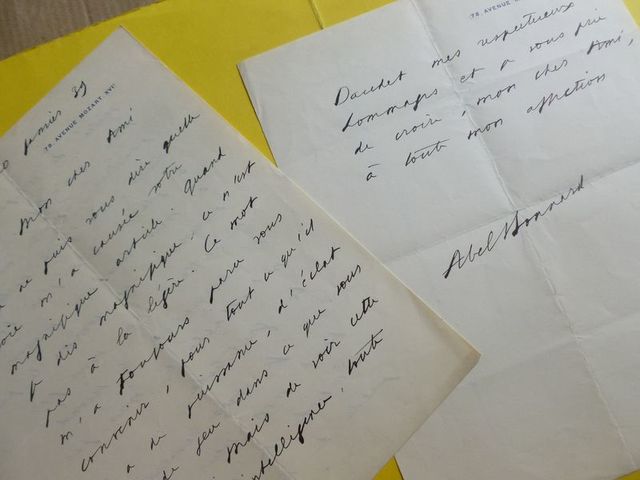 janvier 39
78 AVENUE MOZART XVIe
Mon cher Ami
ne puis vous dire quelle
joie m'a causée votre
magnifique article. Quand
je dis magnifique, ce n'est
pas à la légère. Ce mot
m'a toujours paru vous
convenir, pour tout ce qu'il
a de puissance, d'éclat
de feu dans ce que vous
Mais de voir cette
intelligence, toute
78 AVENUE
Daudet mes respectueux
hommages et à vous prie
de croire, mon cher Ami,
à toute mon affection
Abel Bonnard